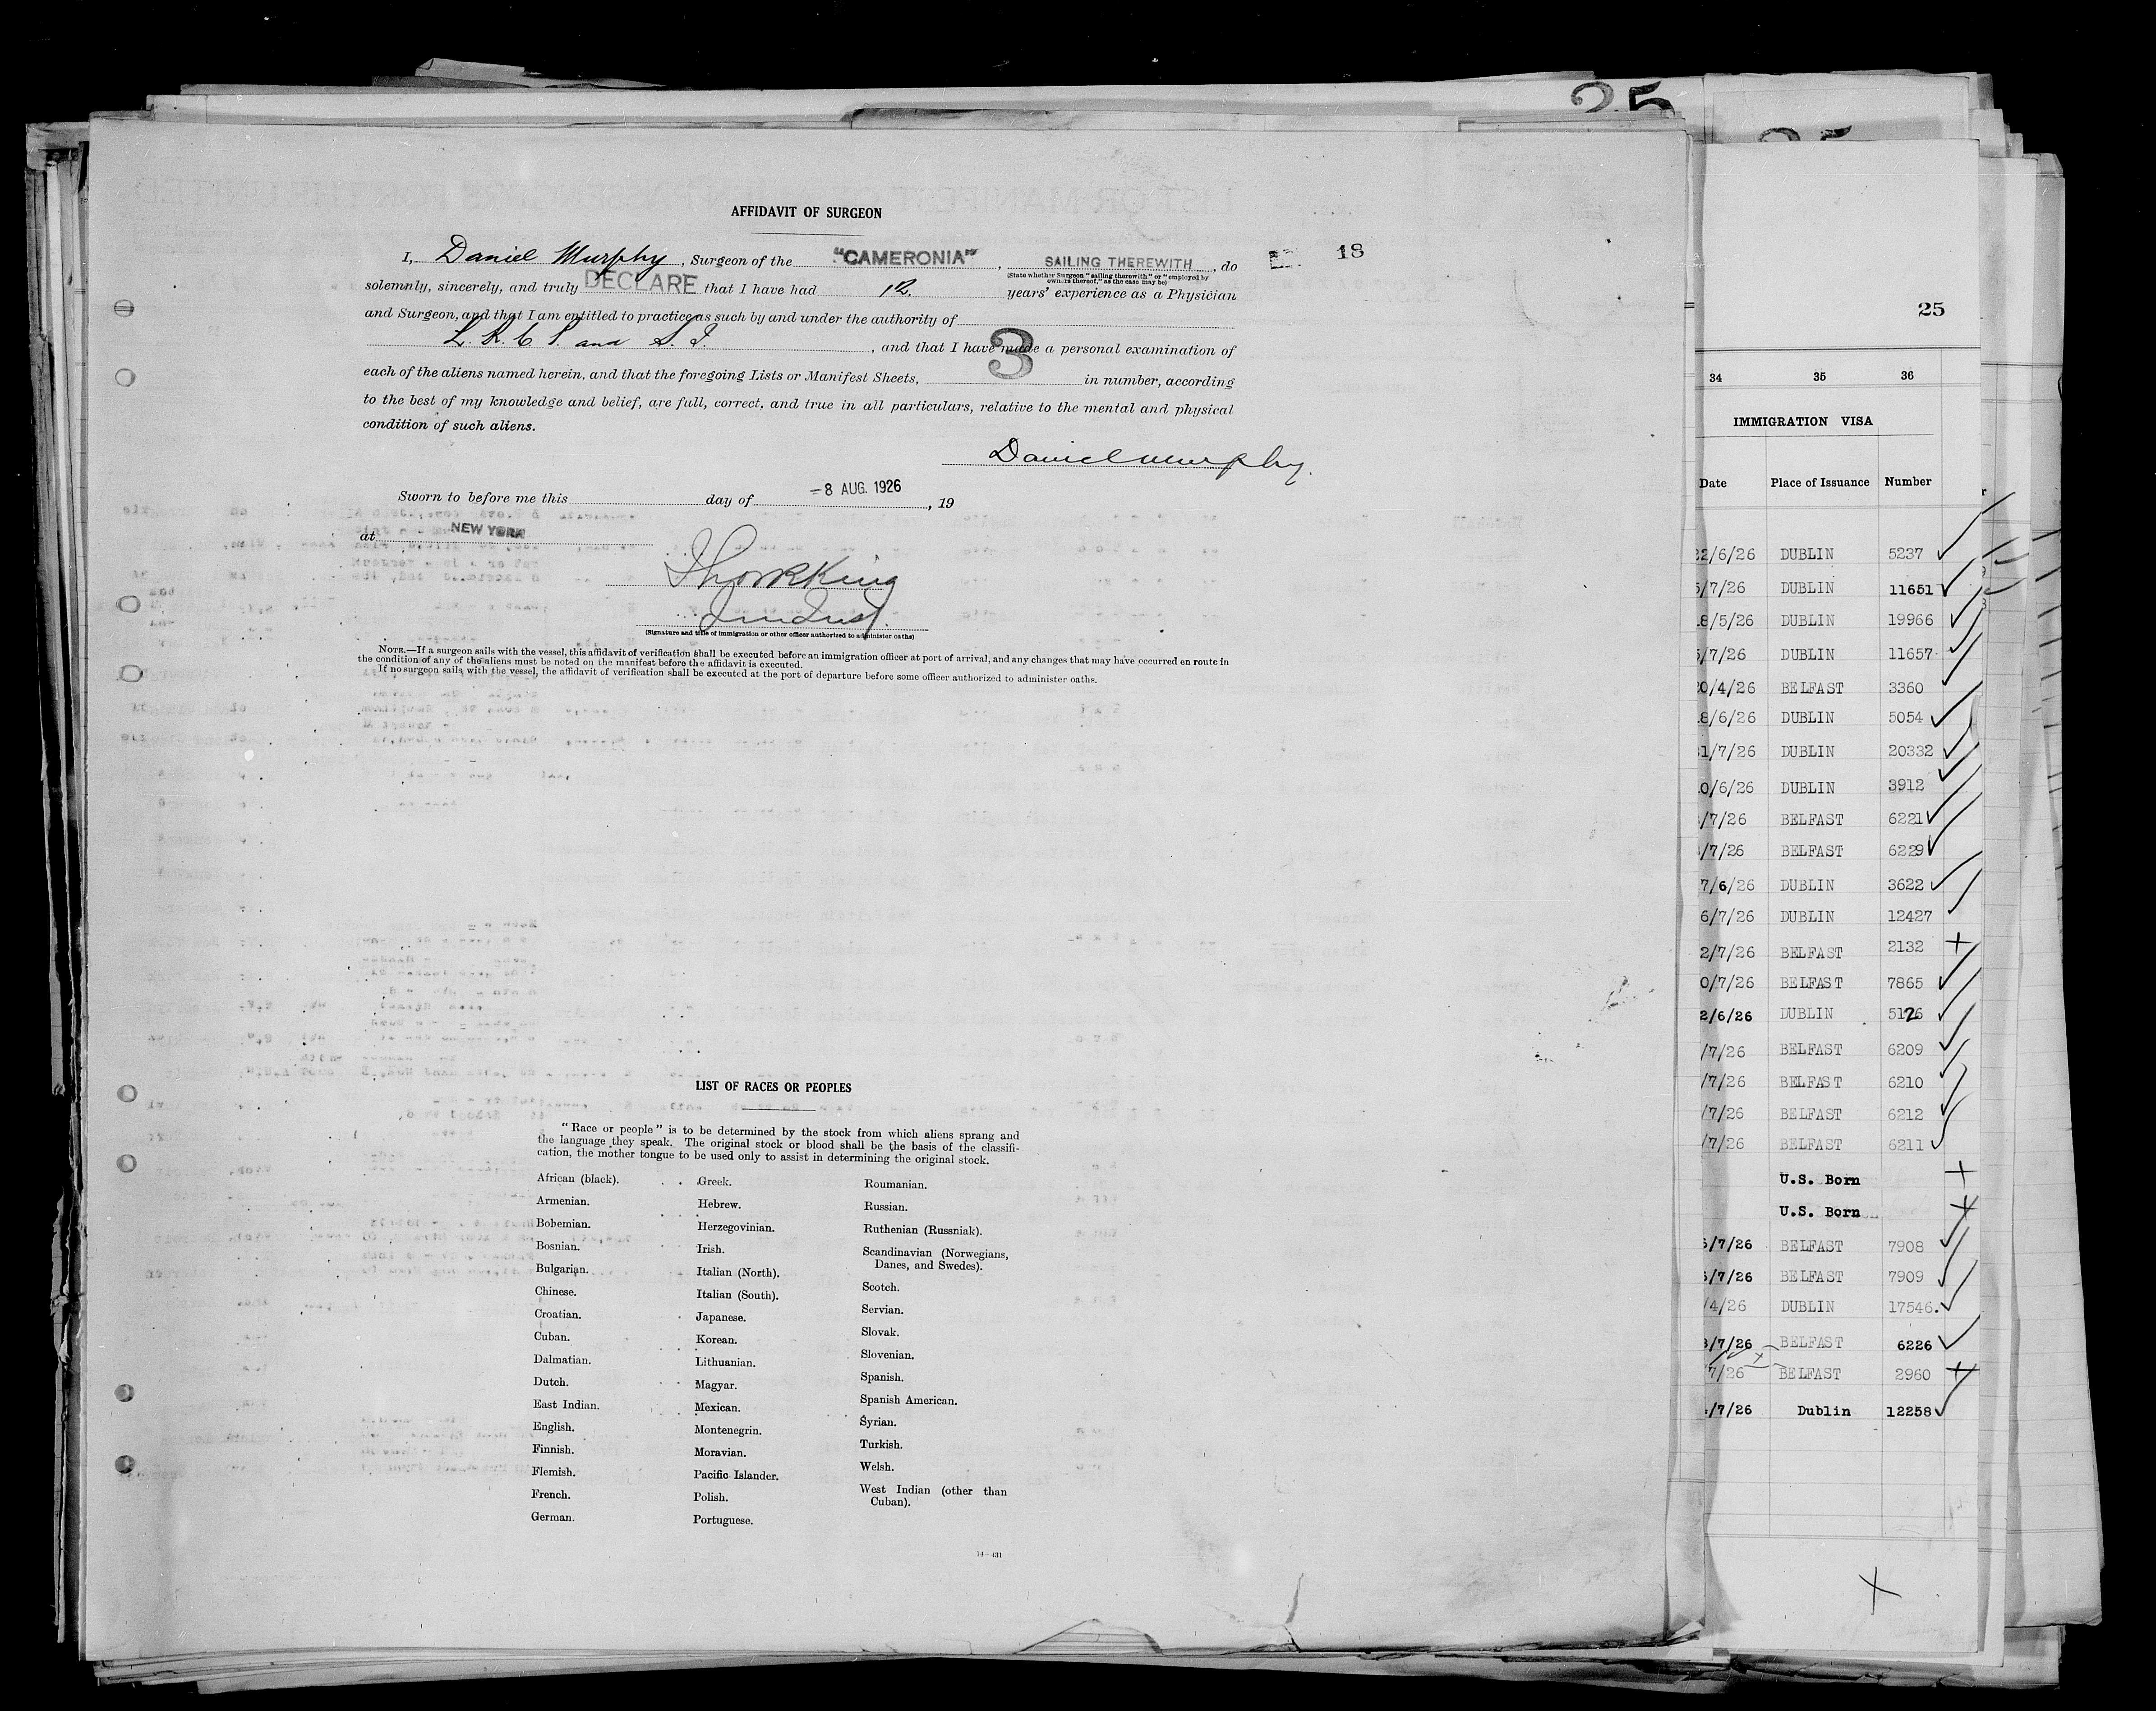 AFFIDAVIT OF SURGEON
I, Daniel Murphy, Surgeon of the "CAMERONIA", SAILING THEREWITH, do
(State whether Surgeon "sailing therewith" or "employed by
owners thereof," as the case may be)
18
solemnly, sincerely, and truly DECLARE that I have had 12. years' experience as a Physician
and Surgeon, and that I am entitled to practice as such by and under the authority of
L. R. C. P. and S. I., and that I have made a personal examination of
each of the aliens named herein, and that the foregoing Lists or Manifest Sheets, 3 in number, according
to the best of my knowledge and belief, are full, correct, and true in all particulars, relative to the mental and physical
condition of such aliens.
Daniel Murphy.
Sworn to before me this day of -8 AUG. 1926, 19
at NEW YORK
King
(Signature and title of immigration or other officer authorized to administer oaths)
NOTE.—If a surgeon sails with the vessel, this affidavit of verification shall be executed before an immigration officer at port of arrival, and any changes that may have occurred en route in
the condition of any of the aliens must be noted on the manifest before the affidavit is executed.
If no surgeon sails with the vessel, the affidavit of verification shall be executed at the port of departure before some officer authorized to administer oaths.
LIST OF RACES OR PEOPLES
"Race or people" is to be determined by the stock from which aliens sprang and
the language they speak. The original stock or blood shall be the basis of the classifi-
cation, the mother tongue to be used only to assist in determining the original stock.
African (black).
Armenian.
Bohemian.
Bosnian.
Bulgarian.
Chinese.
Croatian.
Cuban.
Dalmatian.
Dutch.
East Indian.
English.
Finnish.
Flemish.
French.
German.
Greek.
Hebrew.
Herzegovinian.
Irish.
Italian (North).
Italian (South).
Japanese.
Korean.
Lithuanian.
Magyar.
Mexican.
Montenegrin.
Moravian.
Pacific Islander.
Polish.
Portuguese.
Roumanian.
Russian.
Ruthenian (Russniak).
Scandinavian (Norwegians,
Danes, and Swedes).
Scotch.
Servian.
Slovak.
Slovenian.
Spanish.
Spanish American.
Syrian.
Turkish.
Welsh.
West Indian (other than
Cuban).
14-431
25
25
34 35 36
IMMIGRATION VISA
Date Place of Issuance Number
22/6/26 DUBLIN 5237
5/7/26 DUBLIN 11651
18/5/26 DUBLIN 19966
5/7/26 DUBLIN 11657
20/4/26 BELFAST 3360
18/6/26 DUBLIN 5054
1/7/26 DUBLIN 20332
0/6/26 DUBLIN 3912
/7/26 BELFAST 6221
/7/26 BELFAST 6229
7/6/26 DUBLIN 3622
6/7/26 DUBLIN 12427
2/7/26 BELFAST 2132
0/7/26 BELFAST 7865
2/6/26 DUBLIN 5126
/7/26 BELFAST 6209
/7/26 BELFAST 6210
/7/26 BELFAST 6212
/7/26 BELFAST 6211
U.S. Born
U.S. Born
/7/26 BELFAST 7908
/7/26 BELFAST 7909
/4/26 DUBLIN 17546.
/7/26 BELFAST 6226
7/26 BELFAST 2960
/7/26 Dublin 12258